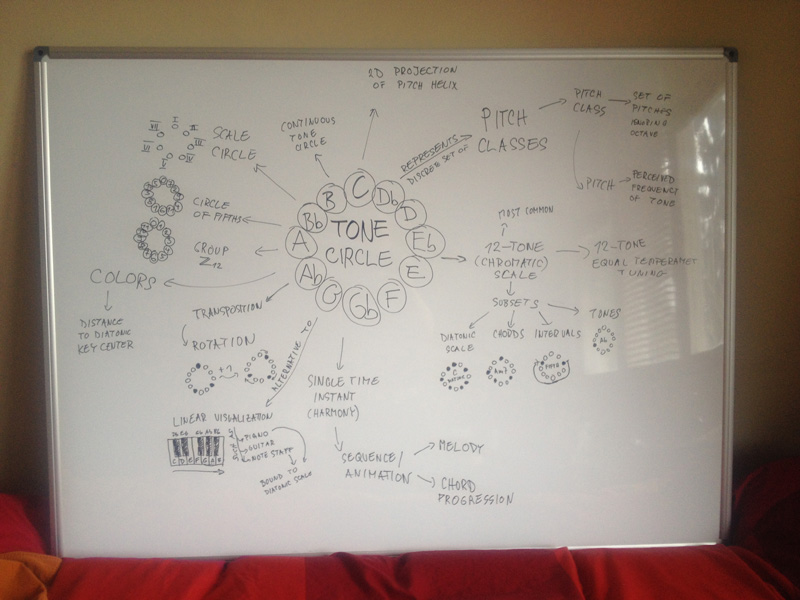 2D PROJECTION
OF PITCH HELIX
CONTINUOUS
TONE
CIRCLE
REPRESENTS
DISCRETE SET OF
PITCH
CLASSES
PITCH
CLASS
SET OF
PITCHES
IGNORING
OCTAVE
PITCH
PERCEIVED
FREQUENCY
OF TONE
I
II
III
IV
V
VI
VII
SCALE
CIRCLE
CIRCLE
OF FIFTHS
GROUP
Z12
COLORS
DISTANCE
TO DIATONIC
KEY CENTER
TONE
CIRCLE
C
Db
D
Eb
E
F
Gb
G
Ab
A
Bb
B
MOST COMMON
12-TONE
(CHROMATIC)
SCALE
12-TONE
EQUAL TEMPERAMET
TUNING
SUBSETS
DIATONIC
SCALE
CHORDS
INTERVALS
TONES
C
Am7
Ab
TRANSPOSITION
ROTATION
+7
ALTERNATIVE TO
LINEAR VISUALIZATION
C D E F G A B
SUCH AS
PIANO
GUITAR
NOTE STAFF
BOUND TO
DIATONIC SCALE
SINGLE TIME
INSTANT
(HARMONY)
SEQUENCE/
ANIMATION
MELODY
CHORD
PROGRESSION